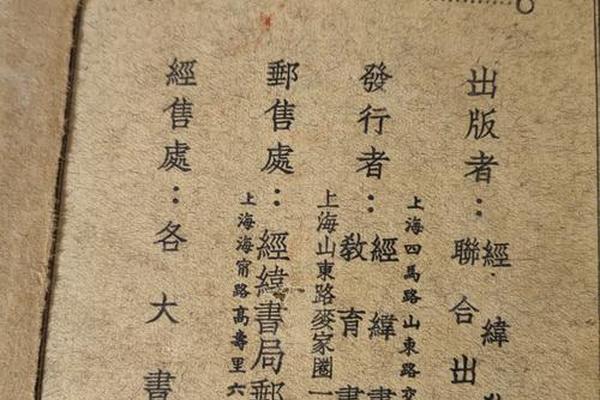 出版者：
經緯
聯合出
上海四馬路山東路交
發行者：
經緯書
敎育書
上海山東路麥家圈一
郵售處：經緯書局郵
上海海甯路高壽里六
經售處：各大書